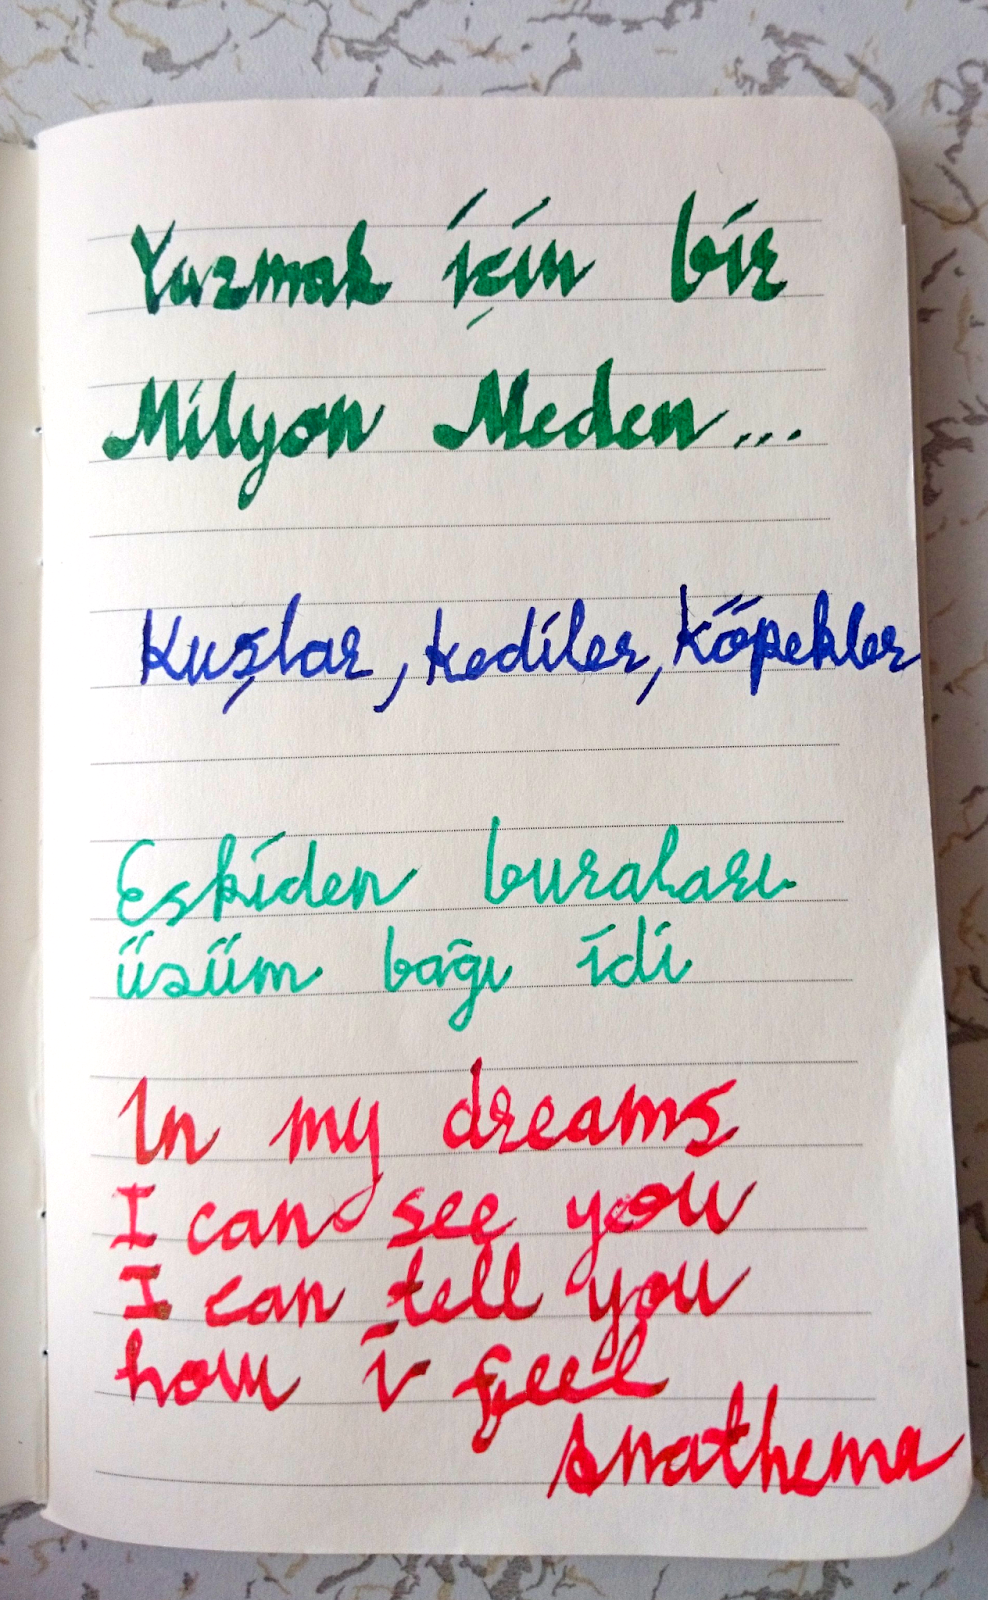 Yazmak için bir
Milyon Neden...
Kuşlar, kediler, köpekler
Eskiden buraları
üzüm bağı idi
In my dreams
I can see you
I can tell you
how i feel
Anathema